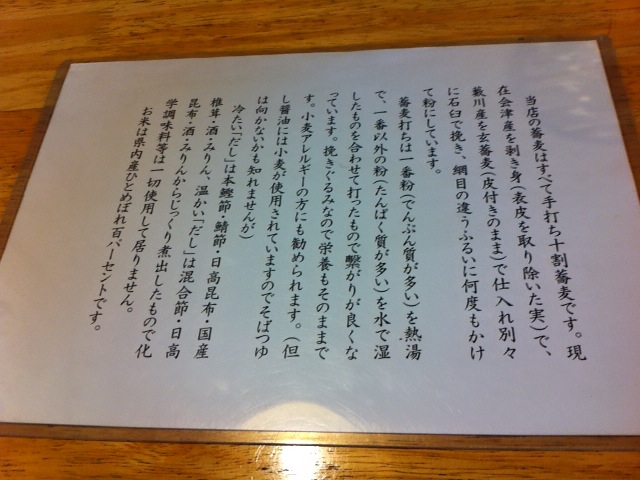 当店の蕎麦はすべて手打ち十割蕎麦です。現
在会津産を剥き身（表皮を取り除いた実）で、
藪川産を玄蕎麦（皮付きのまま）で仕入れ別々
に石臼で挽き、網目の違うふるいに何度もかけ
て粉にしています。
蕎麦打ちは一番粉（でんぷん質が多い）を熱湯
で、一番以外の粉（たんぱく質が多い）を水で湿
したものを合わせて打ったもので繋がりが良くな
っています。挽きぐるみなので栄養もそのままで
す。小麦アレルギーの方にも勧められます。（但
し醤油には小麦が使用されていますのでそばつゆ
は向かないかも知れませんが）
冷たい「だし」は本鰹節・鯖節・日高昆布・国産
椎茸・酒・みりん、温かい「だし」は混合節・日高
昆布・酒・みりんからじっくり煮出したもので化
学調味料等は一切使用して居りません。
お米は県内産ひとめぼれ百パーセントです。